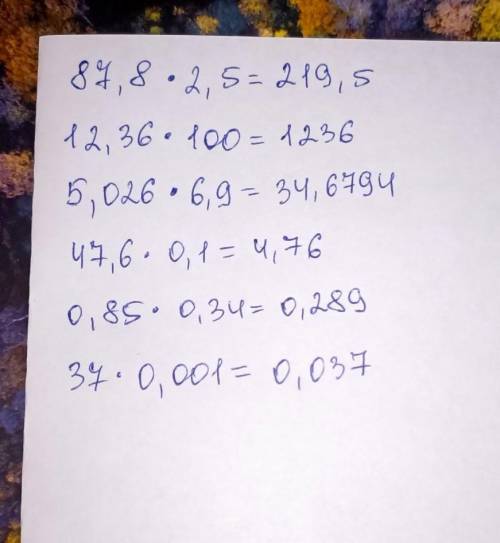 87,8 · 2,5 = 219,5
12,36 · 100 = 1236
5,026 · 6,9 = 34,6794
47,6 · 0,1 = 4,76
0,85 · 0,34 = 0,289
37 · 0,001 = 0,037